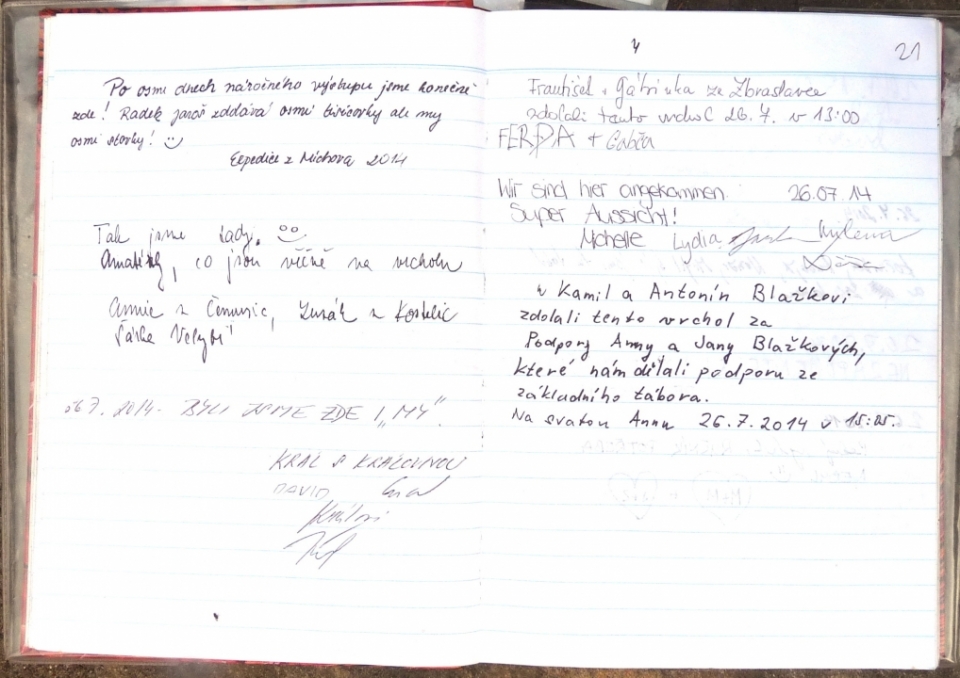 Po osmi dnech náročného výstupu jsme konečně
zde! Radek Jaroš zdolává osmi tisícovky ale my
osmi stovky!
Expedice z Míchova 2014
Tak jsme tady.
Amatéři, co jsou věčně na vrcholu
Annie z
26.7. 2014. BYLI JSME ZDE I „MY".
KRÁL S KRÁLOVNOU
DAVID
Královi
21
František + Gábinka ze Zbraslavce
zdolali tento vrchol 26.7. v 13:00
FERDA + Gabča
Wir sind hier angekommen. 26.07.14
Super Aussicht!
Michelle Lydia Mylena
Kamil a Antonín Blažkovi
zdolali tento vrchol za
Podpory Anny a Jany Blažkových,
které nám dělali podporu ze
základního tábora.
Na svatou Annu 26.7.2014 v 15:05.